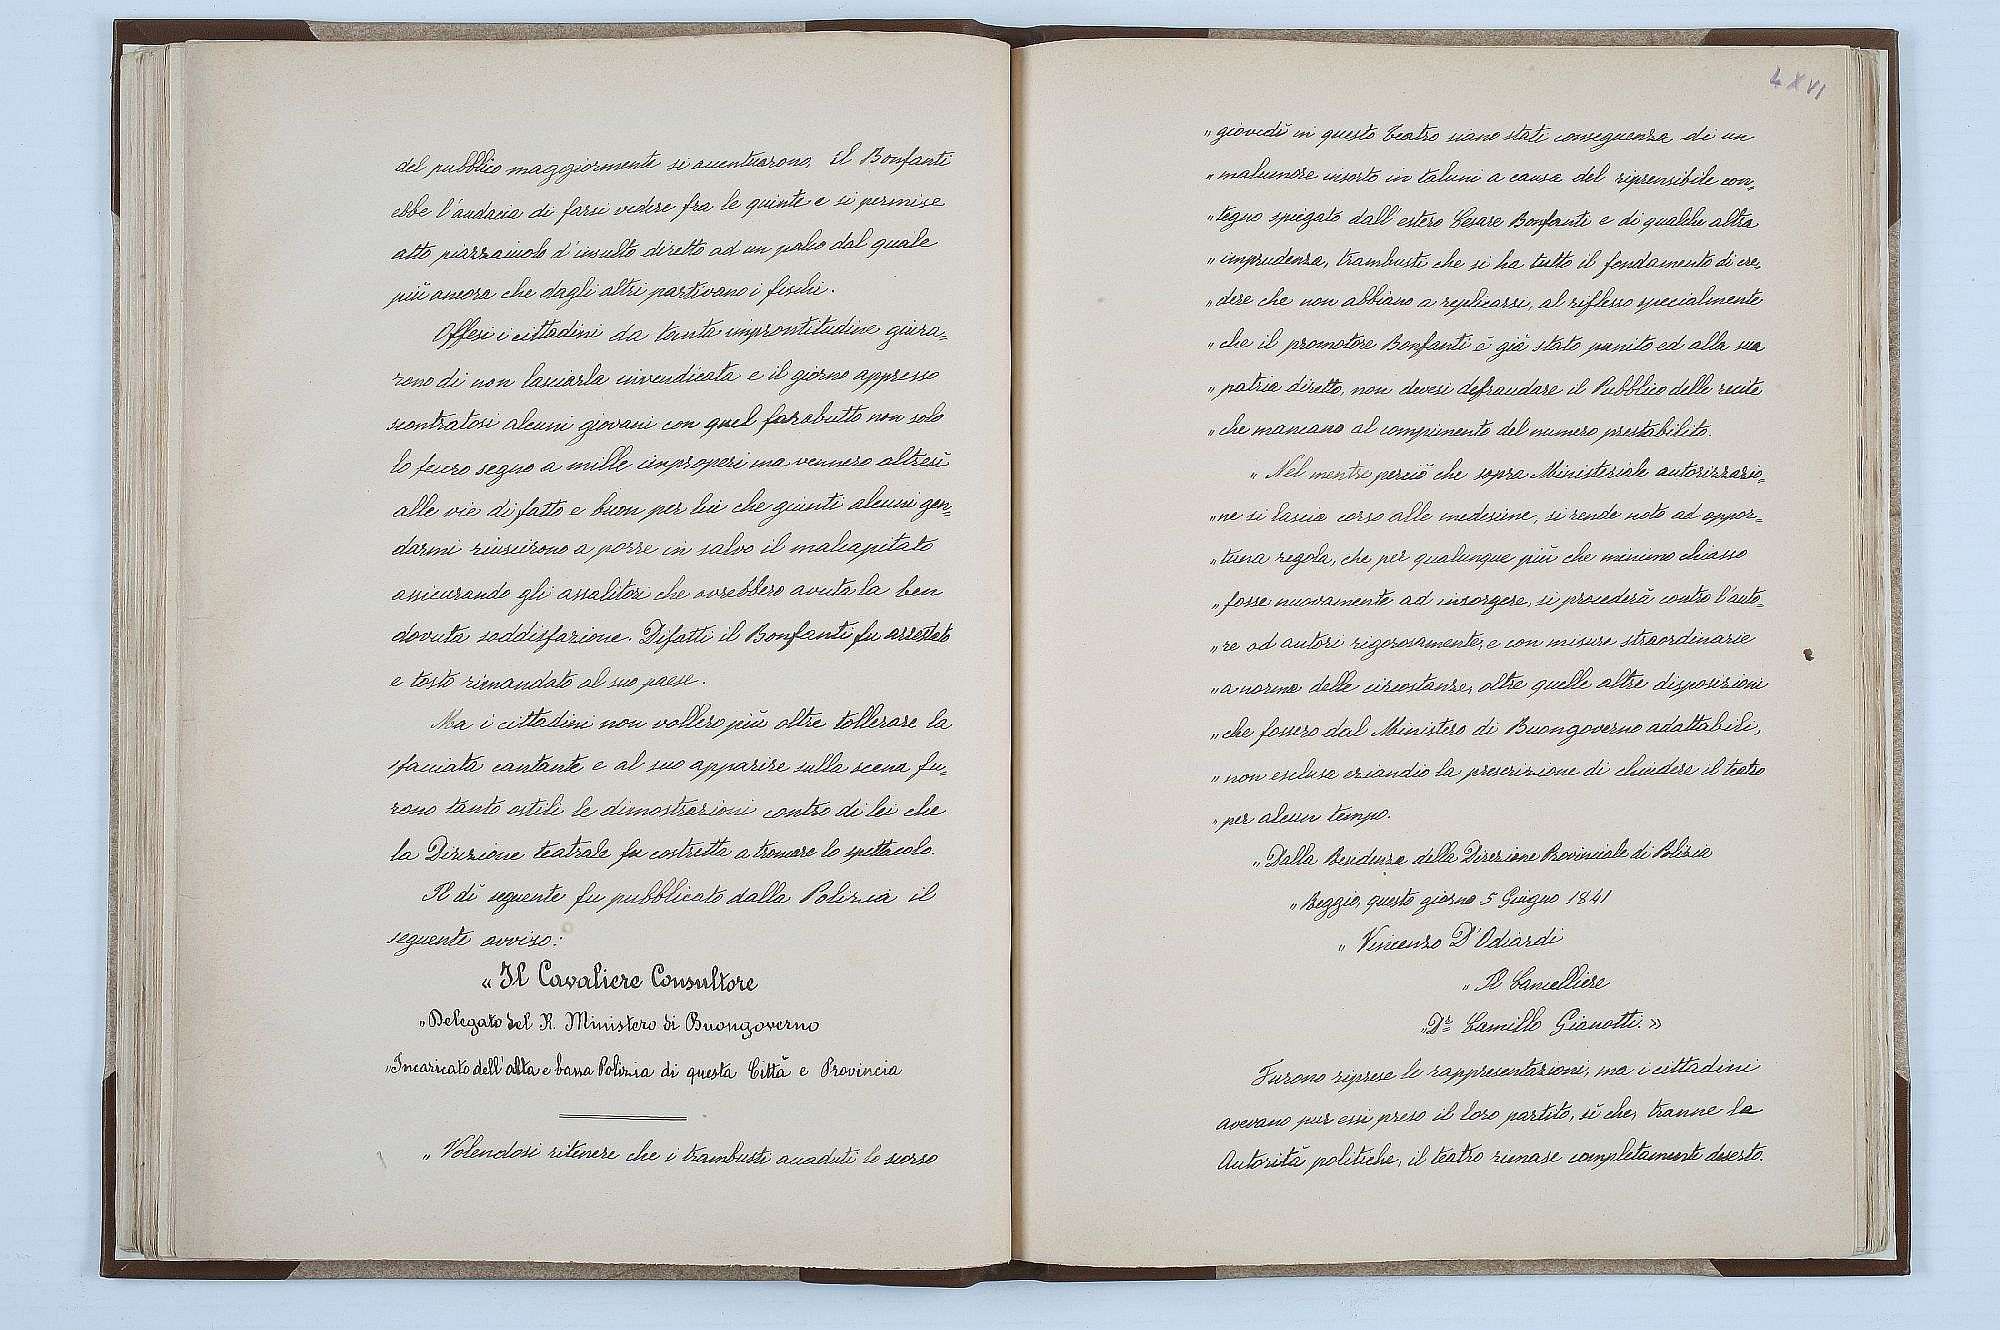 del pubblico maggiormente si accentuarono, il Bonfanti
ebbe l'audacia di farsi vedere fra le quinte e si permise
atto piazzaiolo d'insulto diretto ad un palco dal quale
più ancora che dagli altri partivano i fischi.
Offesi i cittadini da tanta improntitudine giura-
rono di non lasciarla invendicata e il giorno appresso
scontratosi alcuni giovani con quel farabutto non solo
lo fecero segno a mille improperi ma vennero altresì
alle vie di fatto e buon per lui che giunti alcuni gen-
darmi riuscirono a porre in salvo il malcapitato
assicurando gli assalitori che avrebbero avuta la ben
dovuta soddisfazione. Difatti il Bonfanti fu arrestato
e tosto rimandato al suo paese.
Ma i cittadini non vollero più oltre tollerare la
sfacciata cantante e al suo apparire sulla scena fu-
rono tanto ostili le dimostrazioni contro di lei che
la Direzione teatrale fu costretta a troncare lo spettacolo.
Il dì seguente fu pubblicato dalla Polizia il
seguente avviso:
"Il Cavaliere Consultore
"Delegato del R. Ministero di Buongoverno
"Incaricato dell'alta e bassa Polizia di questa Città e Provincia
"Volendosi ritenere che i trambusti accaduti lo scorso
LXVI
"giovedì in questo Teatro siano stati conseguenza di un
"malumore insorto in taluni a causa del riprensibile con-
"tegno spiegato dall'estero Cesare Bonfanti e di qualche altra
"imprudenza, trambusti che si ha tutto il fondamento di cre-
"dere che non abbiano a replicarsi, al riflesso specialmente
"che il promotore Bonfanti è già stato punito ed alla sua
"patria diretto, non devesi defraudare il Pubblico delle recite
"che mancano al compimento del numero prestabilito.
"Nel mentre perciò che sopra Ministeriale autorizzazio-
"ne si lascia corso alle medesime, si rende noto ad oppor-
"tuna regola, che per qualunque più che minimo chiasso
"fosse nuovamente ad insorgere, si procederà contro l'auto-
"re od autori rigorosamente, e con misure straordinarie
"a norma delle circostanze, oltre quelle altre disposizioni
"che fossero dal Ministero di Buongoverno adattabili,
"non esclusa eziandio la prescrizione di chiudere il teatro
"per alcun tempo.
"Dalla Residenza della Direzione Provinciale di Polizia
"Reggio, questo giorno 5 Giugno 1841
"Vincenzo D'Odiardi
"Il Cancelliere
"Dr. Camillo Gianotti."
Furono riprese le rappresentazioni, ma i cittadini
avevano pur essi preso il loro partito, sì che, tranne le
Autorità politiche, il teatro rimase completamente deserto.